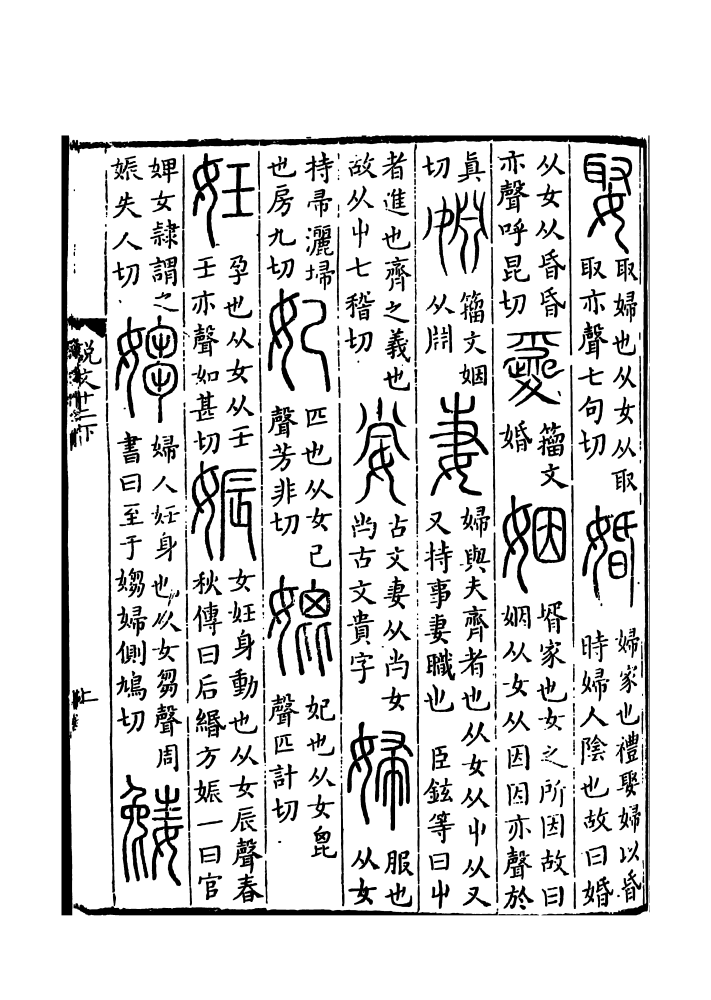 娶
取婦也从女从取
取亦聲七句切
婚
婦家也禮娶婦以昏
時婦人陰也故曰婚
从女从昏昏
亦聲呼昆切
籀文
婚
姻
壻家也女之所因故曰
姻从女从因因亦聲於
真
切
籀文姻
从
妻
婦與夫齊者也从女从屮从又
又持事妻職也 臣鉉等曰屮
者進也齊之義也
故从屮七稽切
古文妻从𡴋女
𡴋古文貴字
婦
服也
从女
持帚灑埽
也房九切
妃
匹也从女己
聲芳非切
媲
妃也从女毘
聲匹計切
妊
孕也从女从壬
壬亦聲如甚切
娠
女妊身動也从女辰聲春
秋傳曰后緡方娠一曰官
婢女隸謂之
娠失人切
媰
婦人妊身也从女芻聲周
書曰至于媰婦側鳩切
説文十二下
上